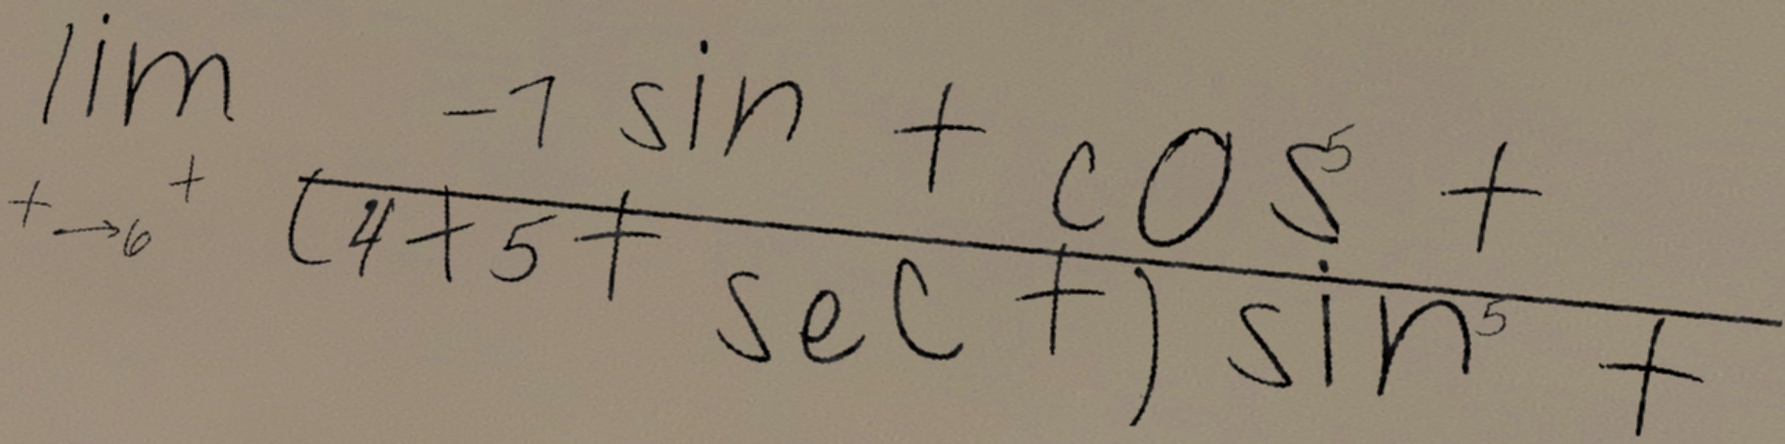 \lim_{t \to 6^+} \frac{-7 \sin t \cos^5 t}{(4 + 5t \sec t) \sin^5 t}